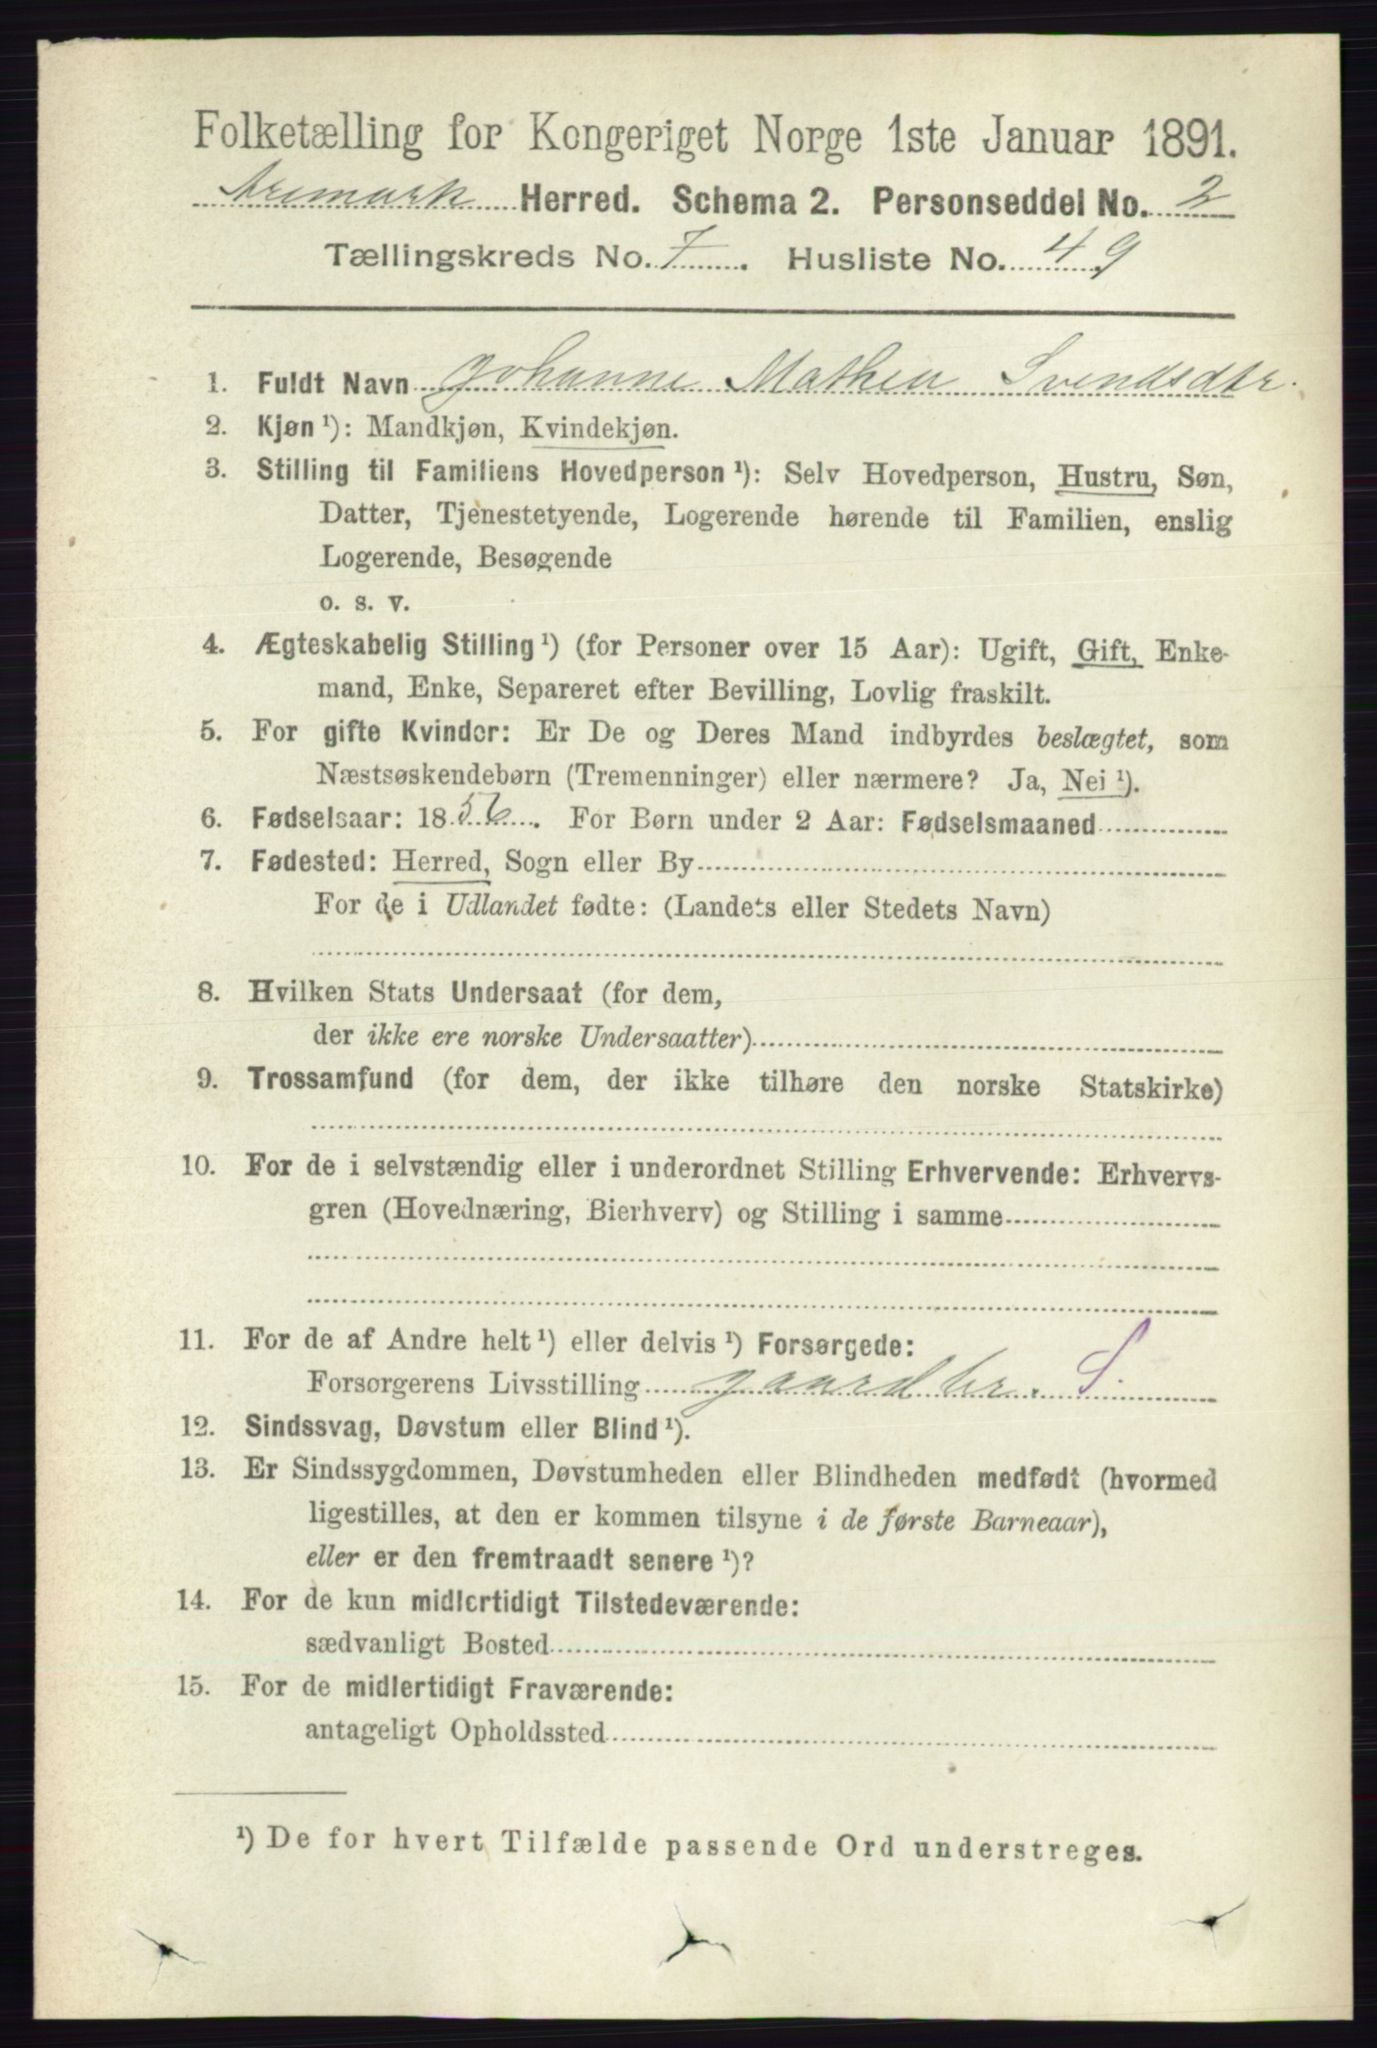 Folketælling for Kongeriget Norge 1ste Januar 1891.
Aremark Herred. Schema 2. Personseddel No. 2
Tællingskreds No. 7. Husliste No. 49
1. Fuldt Navn Johanne Mathea Svendsdtr.
2. Kjøn ¹): Mandkjøn, Kvindekjøn.
3. Stilling til Familiens Hovedperson ¹): Selv Hovedperson, Hustru, Søn,
Datter, Tjenestetyende, Logerende hørende til Familien, enslig
Logerende, Besøgende
o. s. v.
4. Ægteskabelig Stilling ¹) (for Personer over 15 Aar): Ugift, Gift, Enke-
mand, Enke, Separeret efter Bevilling, Lovlig fraskilt.
5. For gifte Kvinder: Er De og Deres Mand indbyrdes beslægtet, som
Næstsøskendebørn (Tremenninger) eller nærmere? Ja, Nei ¹).
6. Fødselsaar: 1856. For Børn under 2 Aar: Fødselsmaaned
7. Fødested: Herred, Sogn eller By
For de i Udlandet fødte: (Landets eller Stedets Navn)
8. Hvilken Stats Undersaat (for dem,
der ikke ere norske Undersaatter)
9. Trossamfund (for dem, der ikke tilhøre den norske Statskirke)
10. For de i selvstændig eller i underordnet Stilling Erhvervende: Erhvervs-
gren (Hovednæring, Bierhverv) og Stilling i samme
11. For de af Andre helt ¹) eller delvis ¹) Forsørgede:
Forsørgerens Livsstilling gaardbr. S.
12. Sindssvag, Døvstum eller Blind ¹).
13. Er Sindssygdommen, Døvstumheden eller Blindheden medfødt (hvormed
ligestilles, at den er kommen tilsyne i de første Barneaar),
eller er den fremtraadt senere ¹)?
14. For de kun midlertidigt Tilstedeværende:
sædvanligt Bosted
15. For de midlertidigt Fraværende:
antageligt Opholdssted
¹) De for hvert Tilfælde passende Ord understreges.